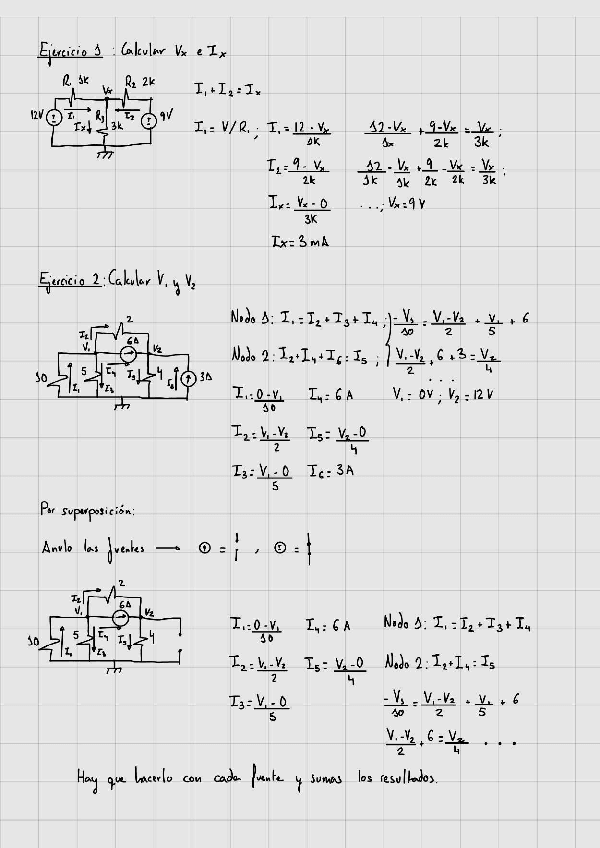 Ejercicio 1 : Calcular Vx e Ix
R1 1k Vx R2 2k
12V I1 I2 9V
Ix R3 3k
I1 + I2 = Ix
I1 = V/R1 ; I1 = 12 - Vx / 1k
I2 = 9 - Vx / 2k
Ix = Vx - 0 / 3k
Ix = 3 mA
12 - Vx / 1k + 9 - Vx / 2k = Vx / 3k ;
12 / 1k - Vx / 1k + 9 / 2k - Vx / 2k = Vx / 3k ;
...; Vx = 9 V
Ejercicio 2 : Calcular V1 y V2
I2 2
V1 6A V2
10 I1 5 I4 I3 I5 4 I6 3A
Nodo 1: I1 = I2 + I3 + I4 ; -V1 / 10 = V1 - V2 / 2 + V1 / 5 + 6
Nodo 2: I2 + I4 + I6 = I5 ; V1 - V2 / 2 + 6 + 3 = V2 / 4
...
I1 = 0 - V1 / 10 I4 = 6 A V1 = 0V ; V2 = 12 V
I2 = V1 - V2 / 2 I5 = V2 - 0 / 4
I3 = V1 - 0 / 5 I6 = 3A
Por superposición:
Anulo las fuentes → = , =
I2 2
V1 6A V2
10 I1 5 I4 I3 I5 4
I1 = 0 - V1 / 10 I4 = 6 A Nodo 1: I1 = I2 + I3 + I4
I2 = V1 - V2 / 2 I5 = V2 - 0 / 4 Nodo 2: I2 + I4 = I5
I3 = V1 - 0 / 5 -V1 / 10 = V1 - V2 / 2 + V1 / 5 + 6
V1 - V2 / 2 + 6 = V2 / 4 ...
Hay que hacerlo con cada fuente y sumas los resultados.